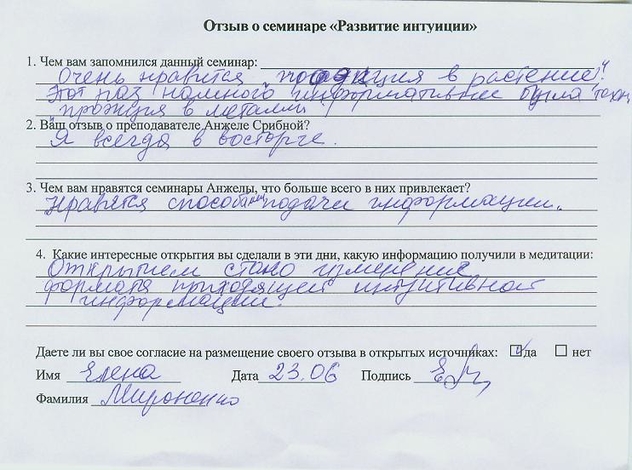 Отзыв о семинаре «Развитие интуиции»
1. Чем вам запомнился данный семинар:
Очень нравится "проэкция в растение".
Этот раз намного информативнее была
в металл
2. Ваш отзыв о преподавателе Анжеле Срибной?
Я всегда в восторге.
3. Чем вам нравятся семинары Анжелы, что больше всего в них привлекает?
Нравятся подачи информации.
4. Какие интересные открытия вы сделали в эти дни, какую информацию получили в медитации:
Открытием стало измерение
формата приходящей интуитивной
информации.
Даете ли вы свое согласие на размещение своего отзыва в открытых источниках: да нет
Имя Елена Дата 23.06 Подпись
Фамилия Мироненко